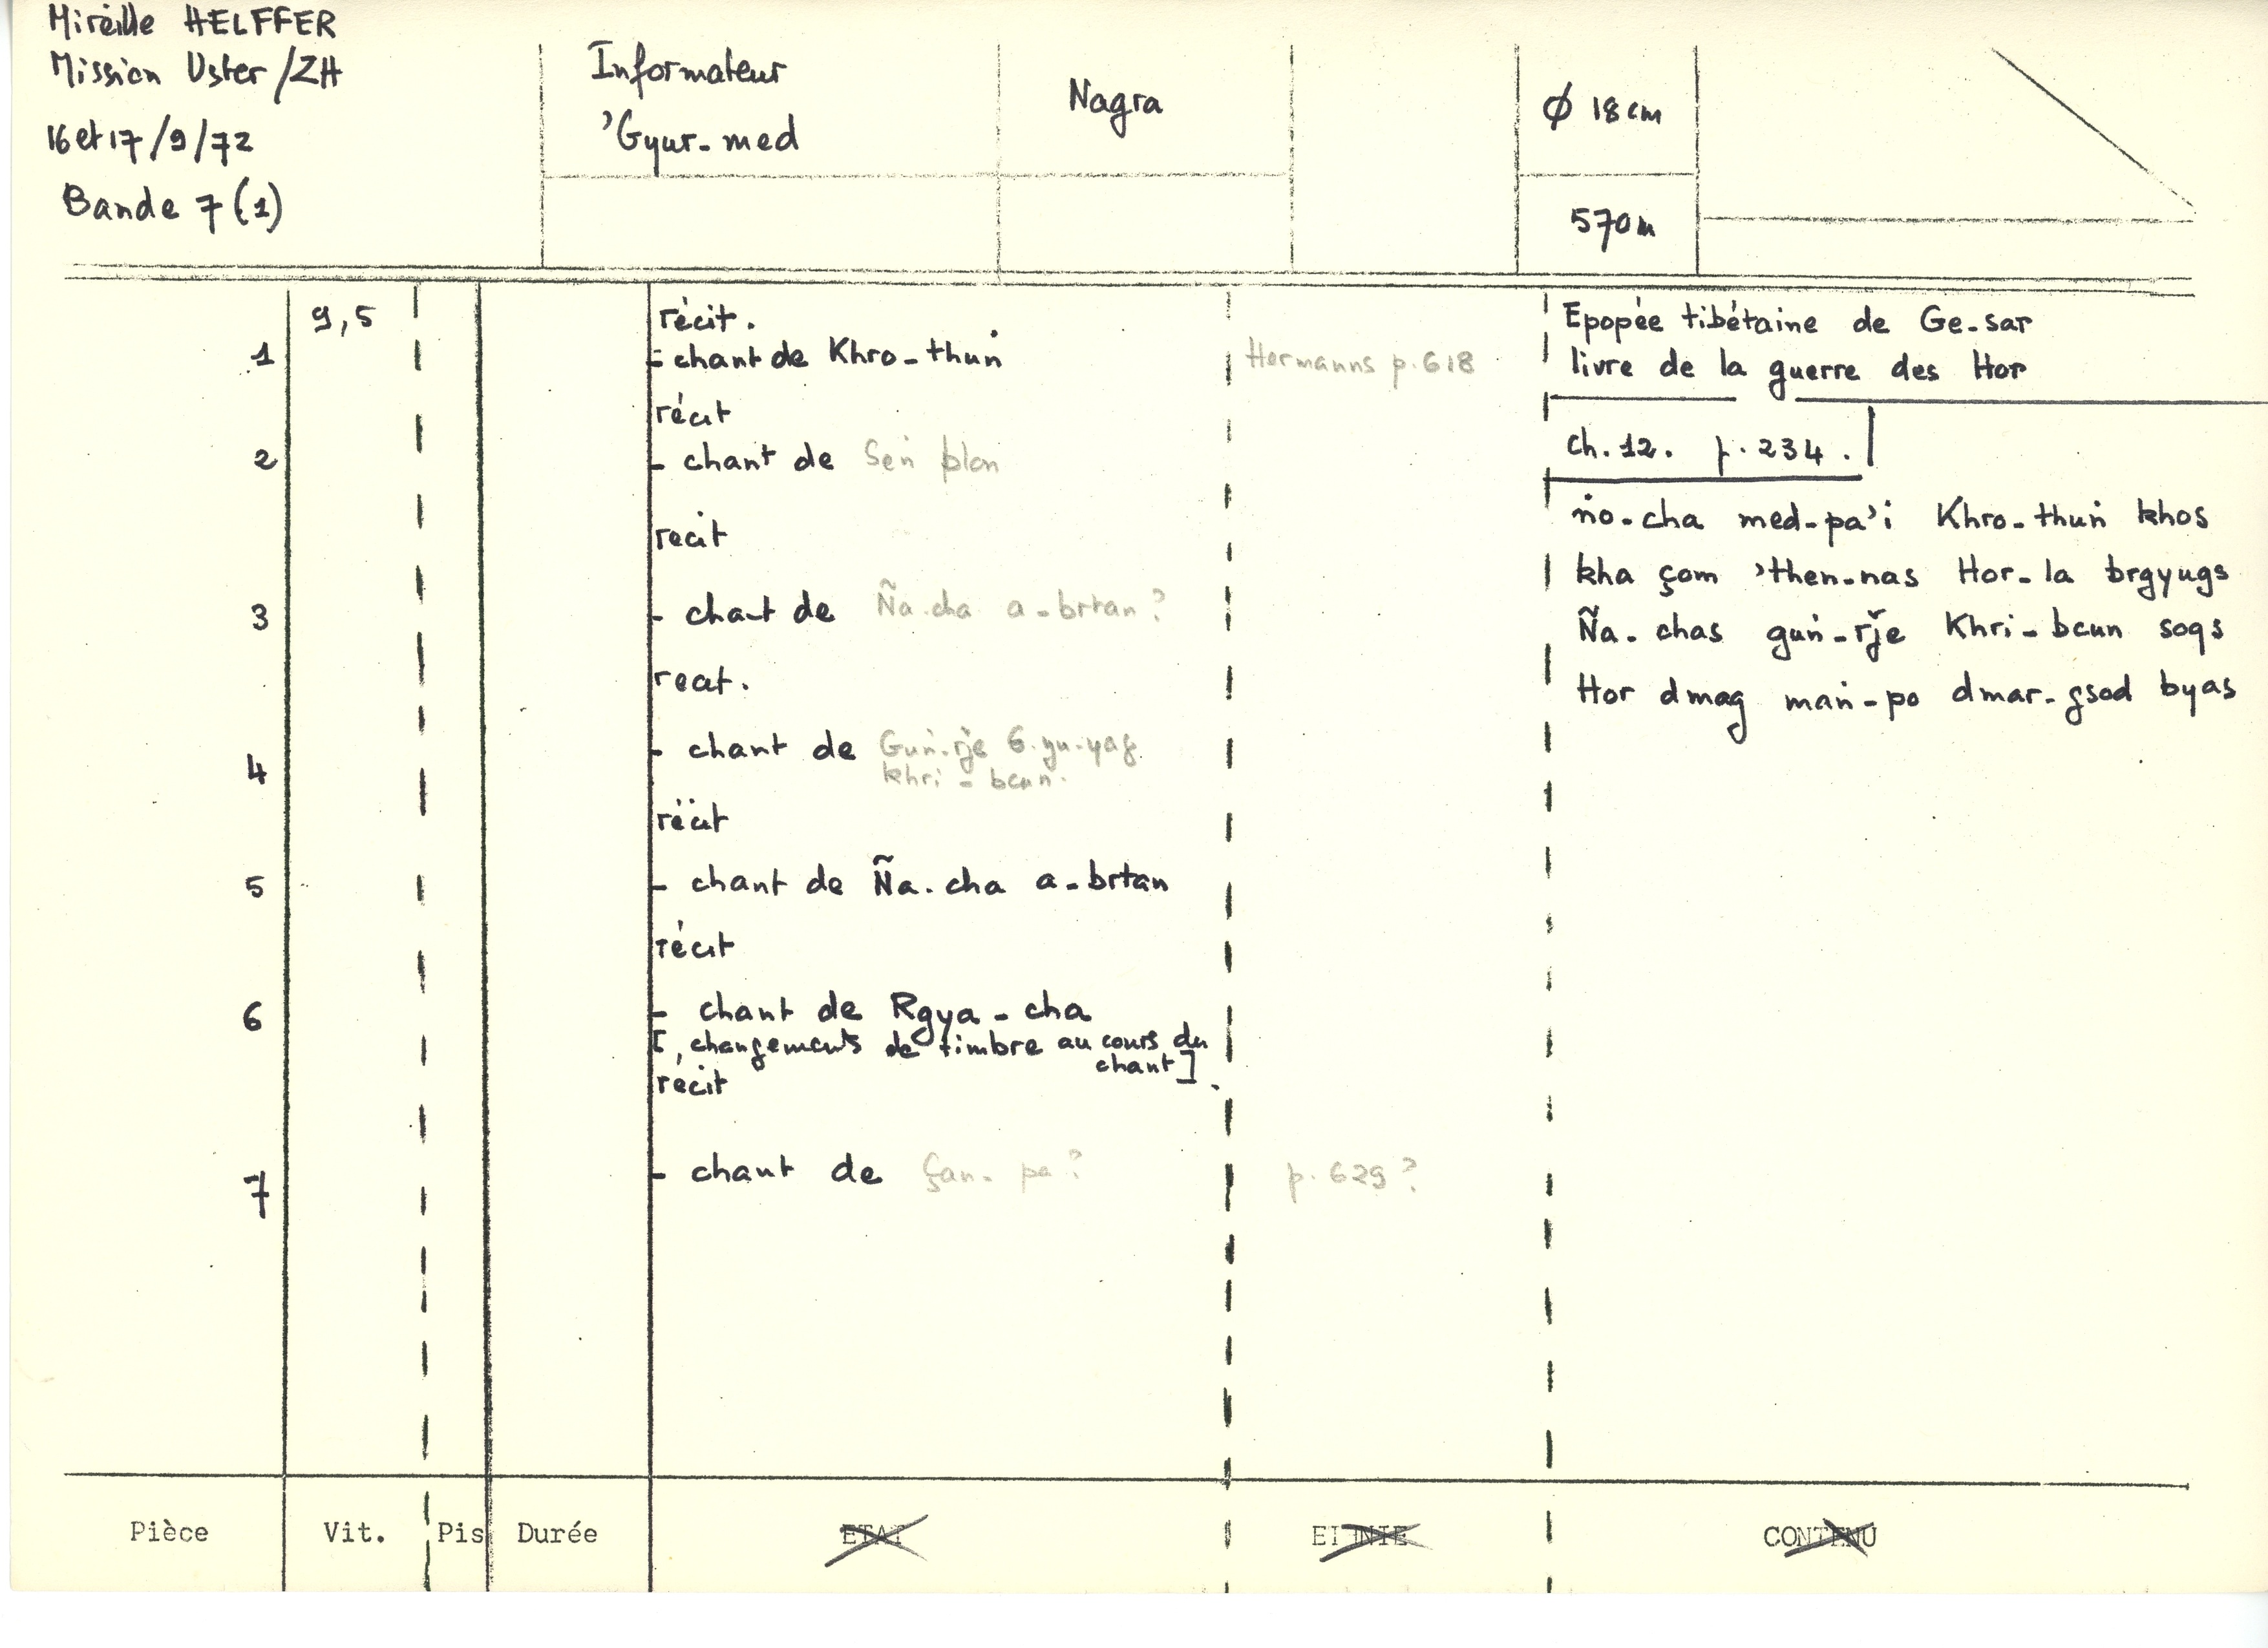 Mireille HELFFER
Mission Uster/ZH
16 et 17/9/72
Bande 7 (1)
Informateur
'Gyur-med
Nagra
Ø 18 cm
570 m
9,5
récit.
1 - chant de Khro-thuṅ
Hermanns p. 618
récit
2 - chant de Seṅ blon
recit
3 - chant de Ña.cha a-brtan ?
recit.
4 - chant de Guṅ-rǰe G.yu-yag
khri-bcun.
récit
5 - chant de Ña.cha a-brtan
récit
6 - chant de Rgya-cha
[, changements de timbre au cours du
chant].
récit
7 - chant de Çan-pa ?
p. 629 ?
Epopée tibétaine de Ge-sar
livre de la guerre des Hor
ch. 12. p. 234.
ṅo-cha med-pa'i Khro-thuṅ khos
kha çom 'then-nas Hor-la brgyugs
Ña-chas guṅ-rǰe Khri-bcun sogs
Hor dmag maṅ-po dmar-gsod byas
Pièce
Vit.
Pis
Durée
ETAT
ETHNIE
CONTENU